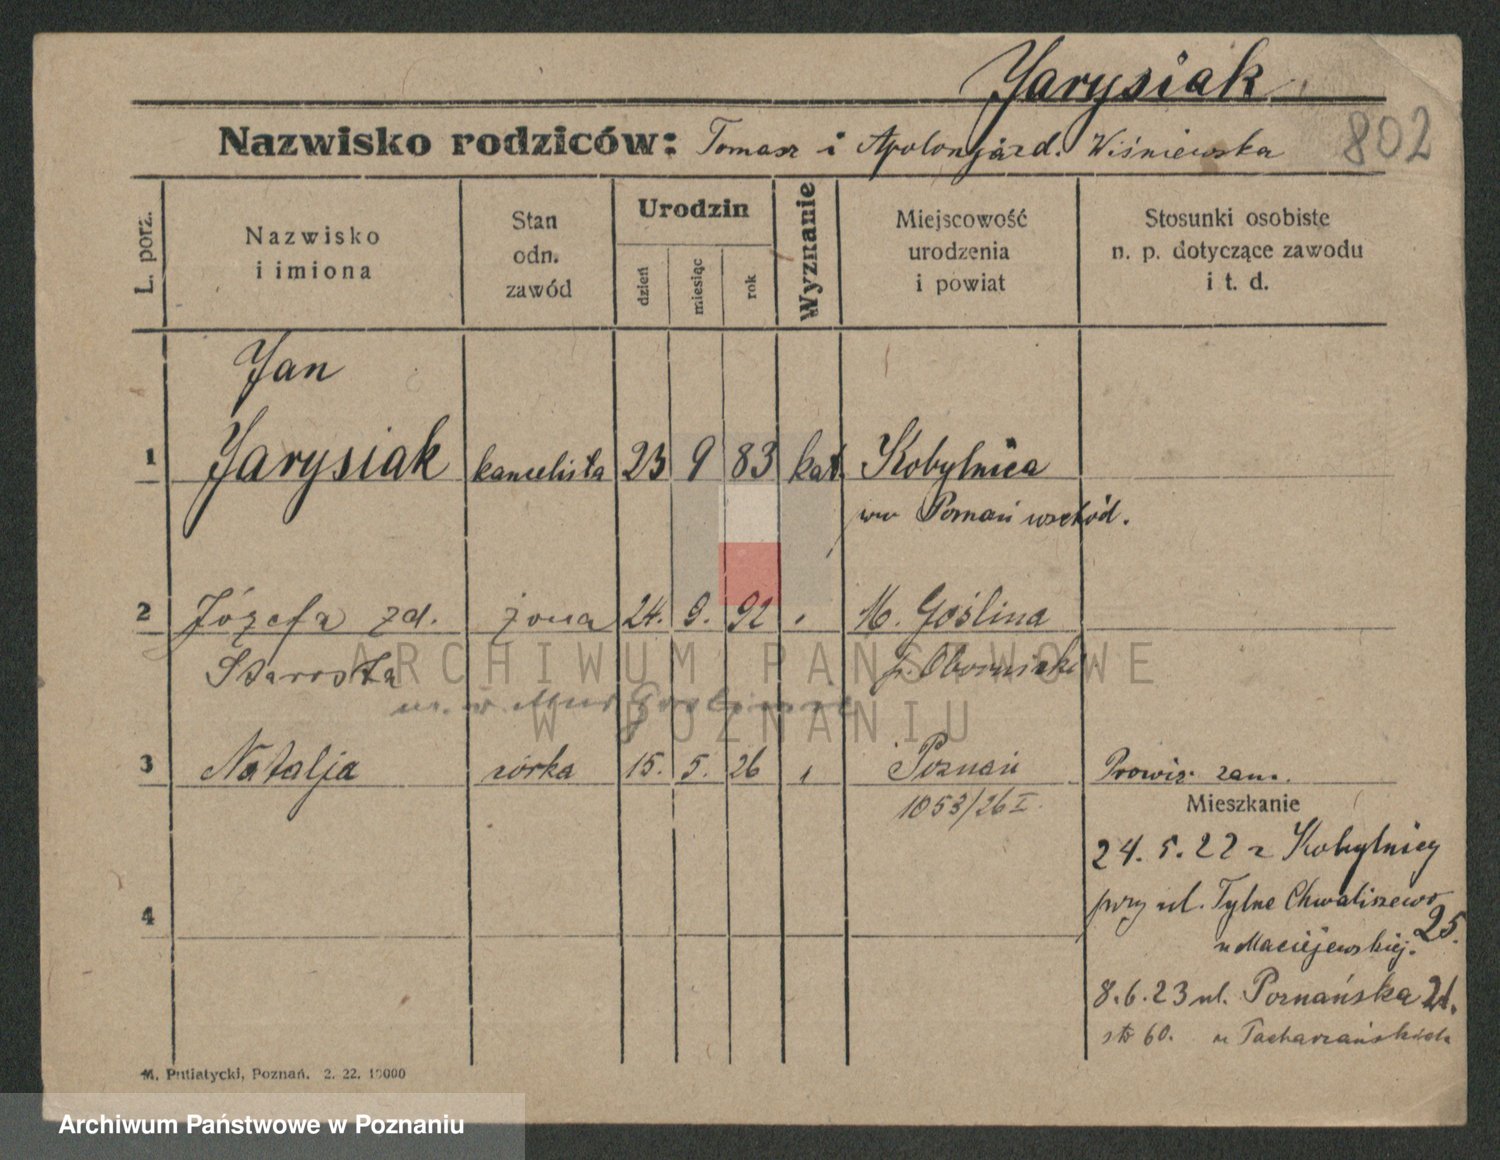 Jarysiak
802
Nazwisko rodziców: Tomasz i Apolonja zd. Wiśniewska
L. porz.
Nazwisko
i imiona
Stan
odn.
zawód
Urodzin
dzień
miesiąc
rok
Wyznanie
Miejscowość
urodzenia
i powiat
Stosunki osobiste
n. p. dotyczące zawodu
i t. d.
Jan
1 Jarysiak kancelista 23 9 83 kat. Kobylnica
Poznań wschód.
2 Józefa zd. żona 24. 9. 92 " M. Goślina
Starosta p. Obornicki
3 Natalja córka 15. 5. 26 " Poznań Prowiz. zam.
1053/26 I.
Mieszkanie
24. 5. 22 z Kobylnicy
przy ul. Tylne Chwaliszewo
25.
u Maciejewskiej.
4
8. 6. 23 ul. Poznańska 21.
60. u
M. Putiatycki, Poznań. 2. 22. 10000
ARCHIWUM PAŃSTWOWE
W POZNANIU
Archiwum Państwowe w Poznaniu